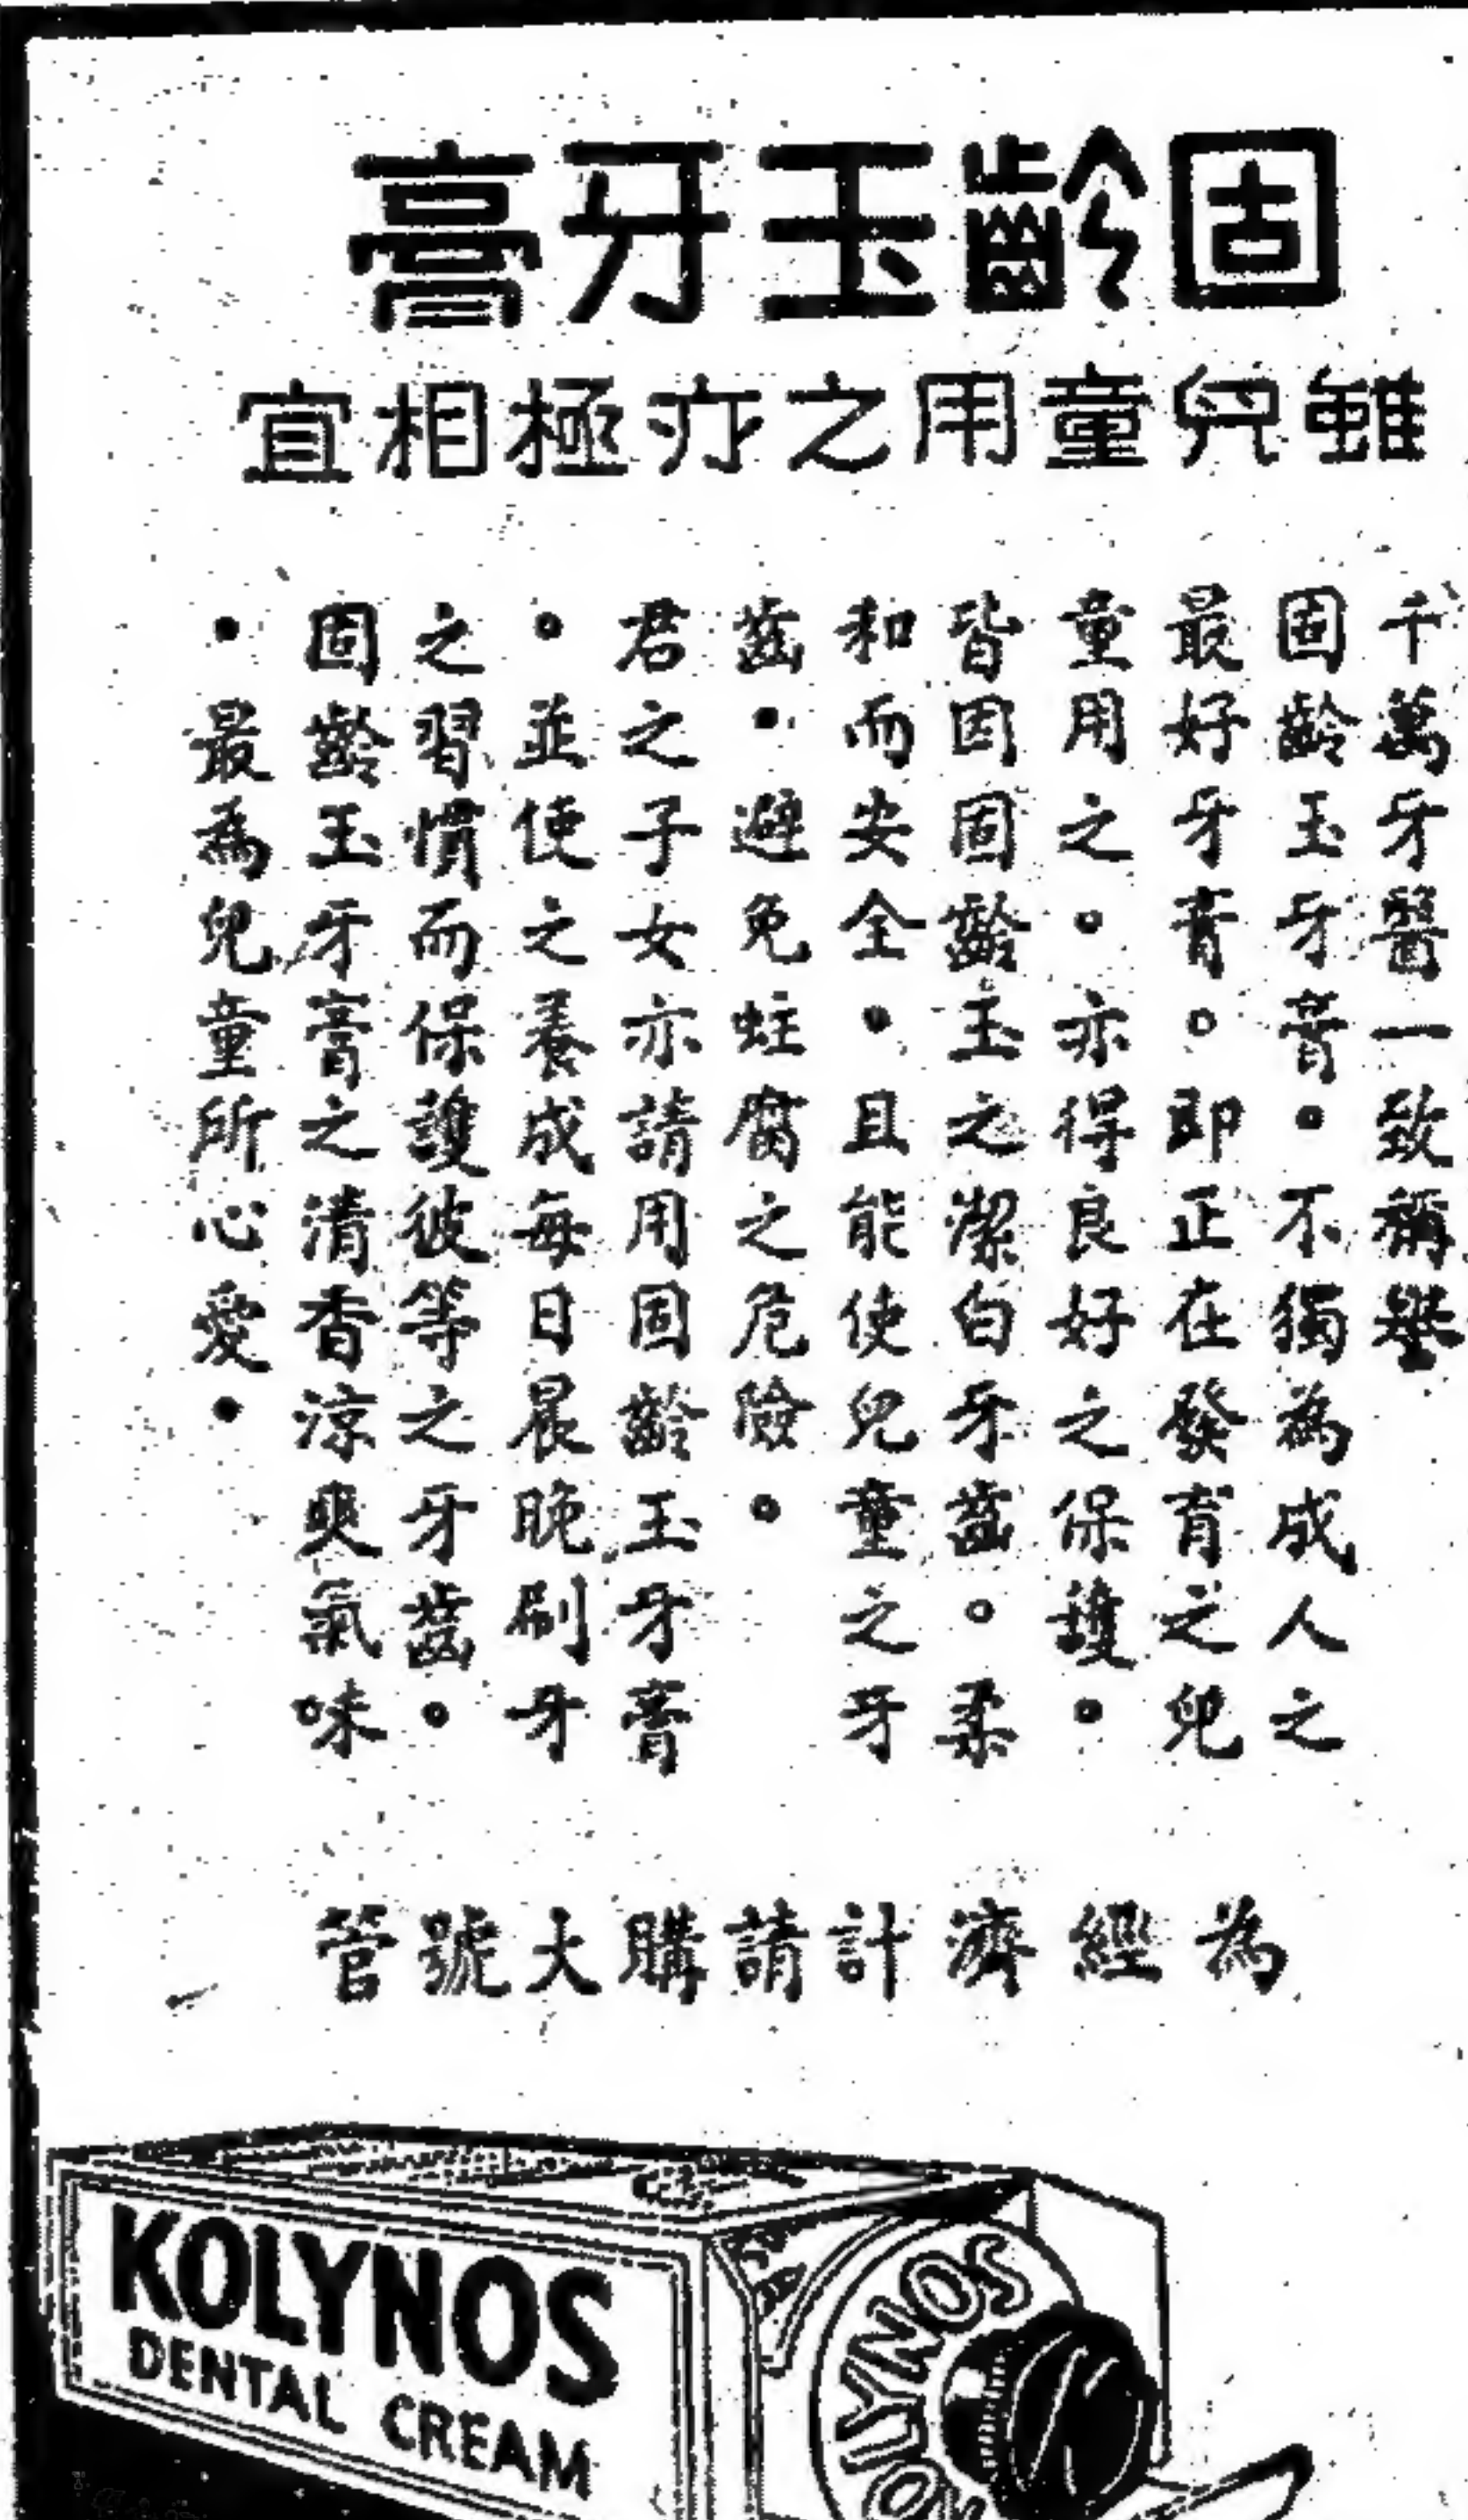 固齡玉牙膏
雖兒童用之亦極相宜
千萬牙醫一致稱譽
固齡玉牙膏。不獨為成人之
最好牙膏。即正在發育之兒
童用之。亦得良好之保護。
皆因固齡玉之潔白牙齒。柔
和而安全。且能使兒童之牙
齒。避免蛀腐之危險。
君之子女亦請用固齡玉牙膏
。並使之養成每日晨晚刷牙
之習慣而保護彼等之牙齒。
固齡玉牙膏之清香涼爽氣味
。最為兒童所心愛。
為經濟計請購大號管
KOLYNOS
DENTAL CREAM
KOLYNOS